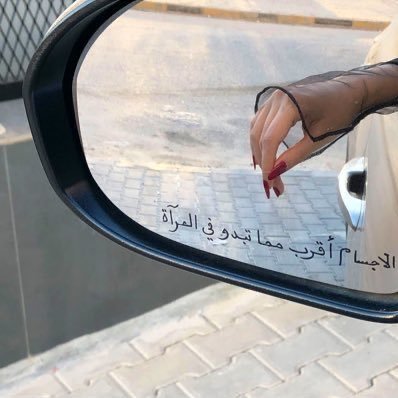 الاجسام أقرب مما تبدو في المرآة